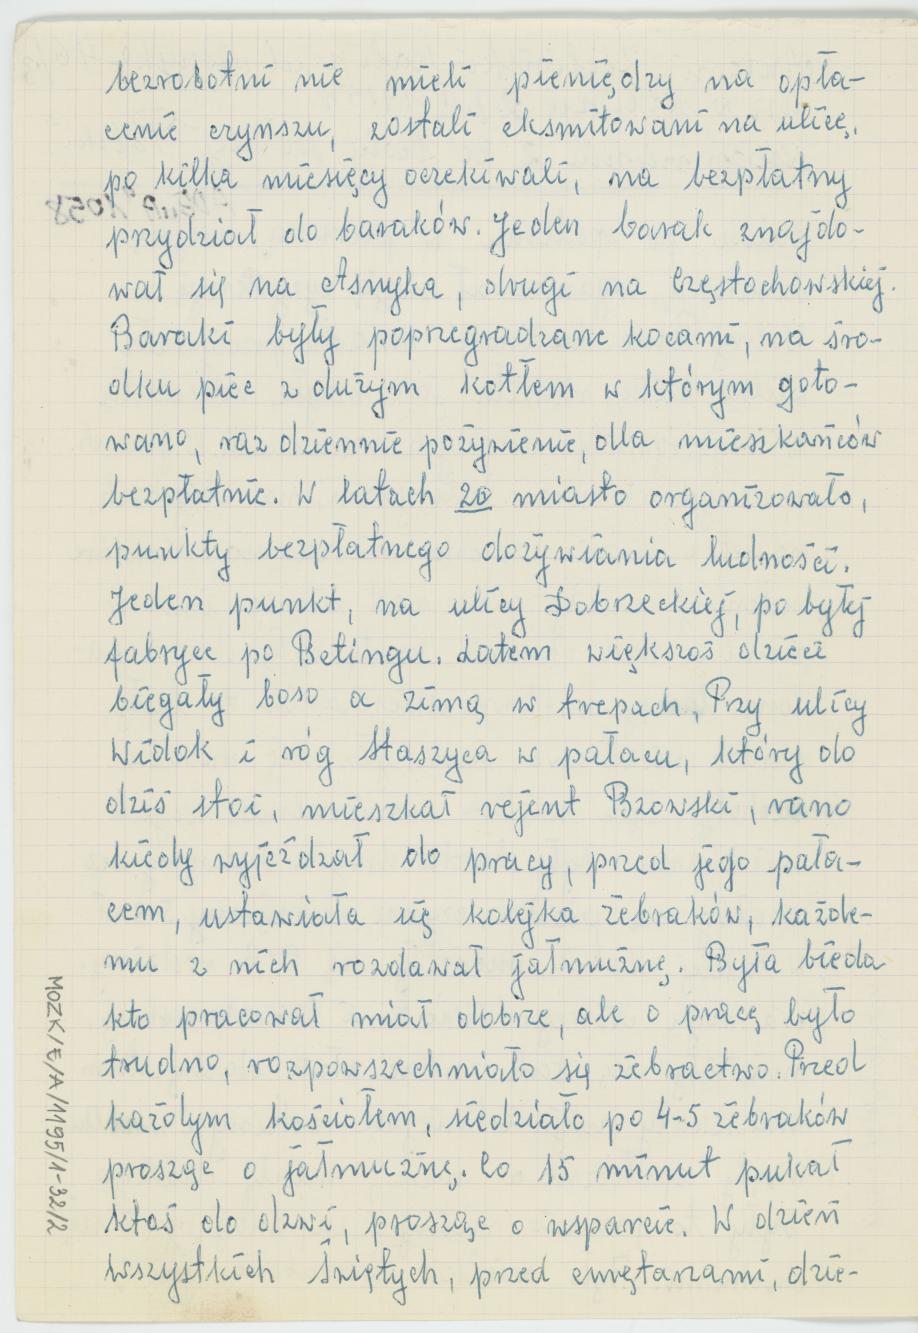 bezrobotni nie mieli pieniędzy na opła-
cenie czynszu, zostali eksmitowani na ulicę,
po kilka miesięcy oczekiwali, na bezpłatny
przydział do baraków. Jeden barak znajdo-
wał się na Asnyka, drugi na Częstochowskiej.
Baraki były poprzegradzane kocami, na śro-
dku piec z dużym kotłem w którym goto-
wano, raz dziennie pożywienie, dla mieszkańców
bezpłatnie. W latach 20 miasto organizowało,
punkty bezpłatnego dożywiania ludności.
Jeden punkt, na ulicy Dobrzeckiej, po byłej
fabryce po Betingu. Latem większoś dzieci
biegały boso a zimą w trepach, Przy ulicy
Widok i róg Staszyca w pałacu, który do
dziś stoi, mieszkał rejent Bzowski, rano
kiedy wyjeżdżał do pracy, przed jego pała-
cem, ustawiała się kolejka żebraków, każde-
mu z nich rozdawał jałmużnę. Była bieda
kto pracował miał dobrze, ale o pracę było
trudno, rozpowszechniało się żebractwo. Przed
każdym kościołem, siedziało po 4-5 żebraków
prosząc o jałmużnę. Co 15 minut pukał
ktoś do dzwi, prosząc o wsparcie. W dzień
wszystkich Świętych, przed cmętarzami, dzie-
MOZK/E/A/1195/1-32/2